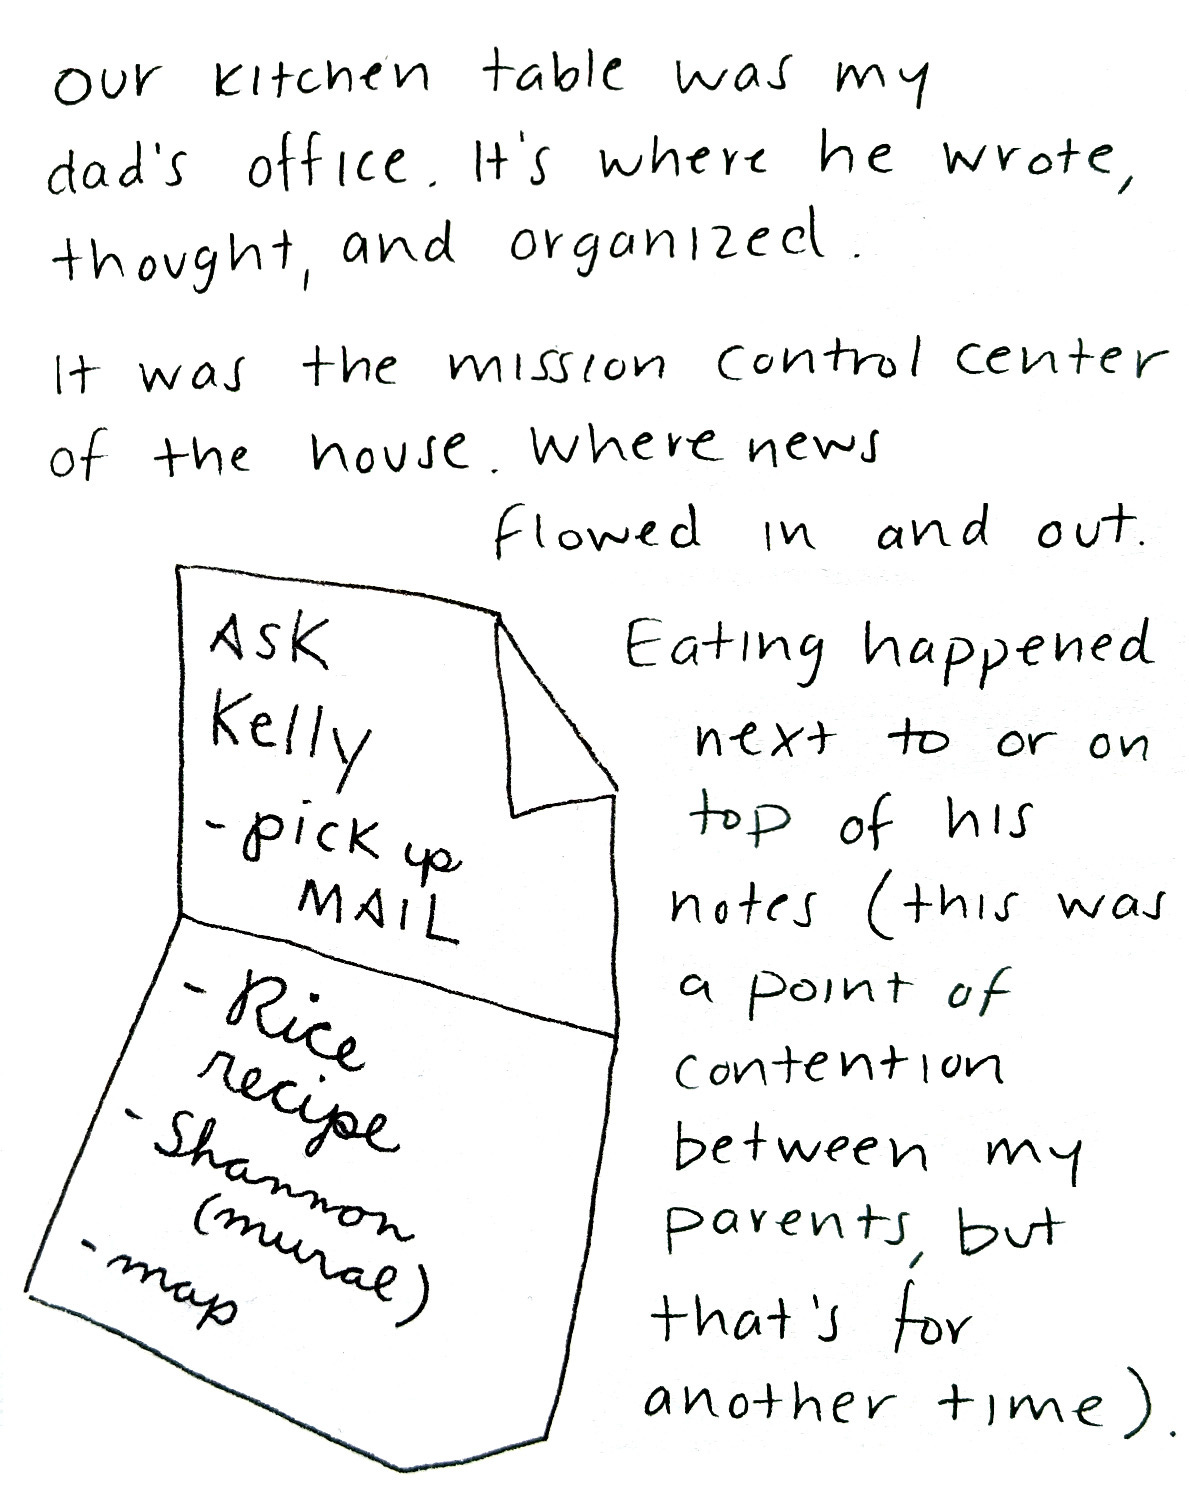 our kitchen table was my
dad's office. It's where he wrote,
thought, and organized.
It was the mission control center
of the house. Where news
flowed in and out.
Eating happened
next to or on
top of his
notes (this was
a point of
contention
between my
parents, but
that's for
another time).
ASK
Kelly
- pick up
MAIL
- Rice
recipe
- Shannon
(mural)
- map